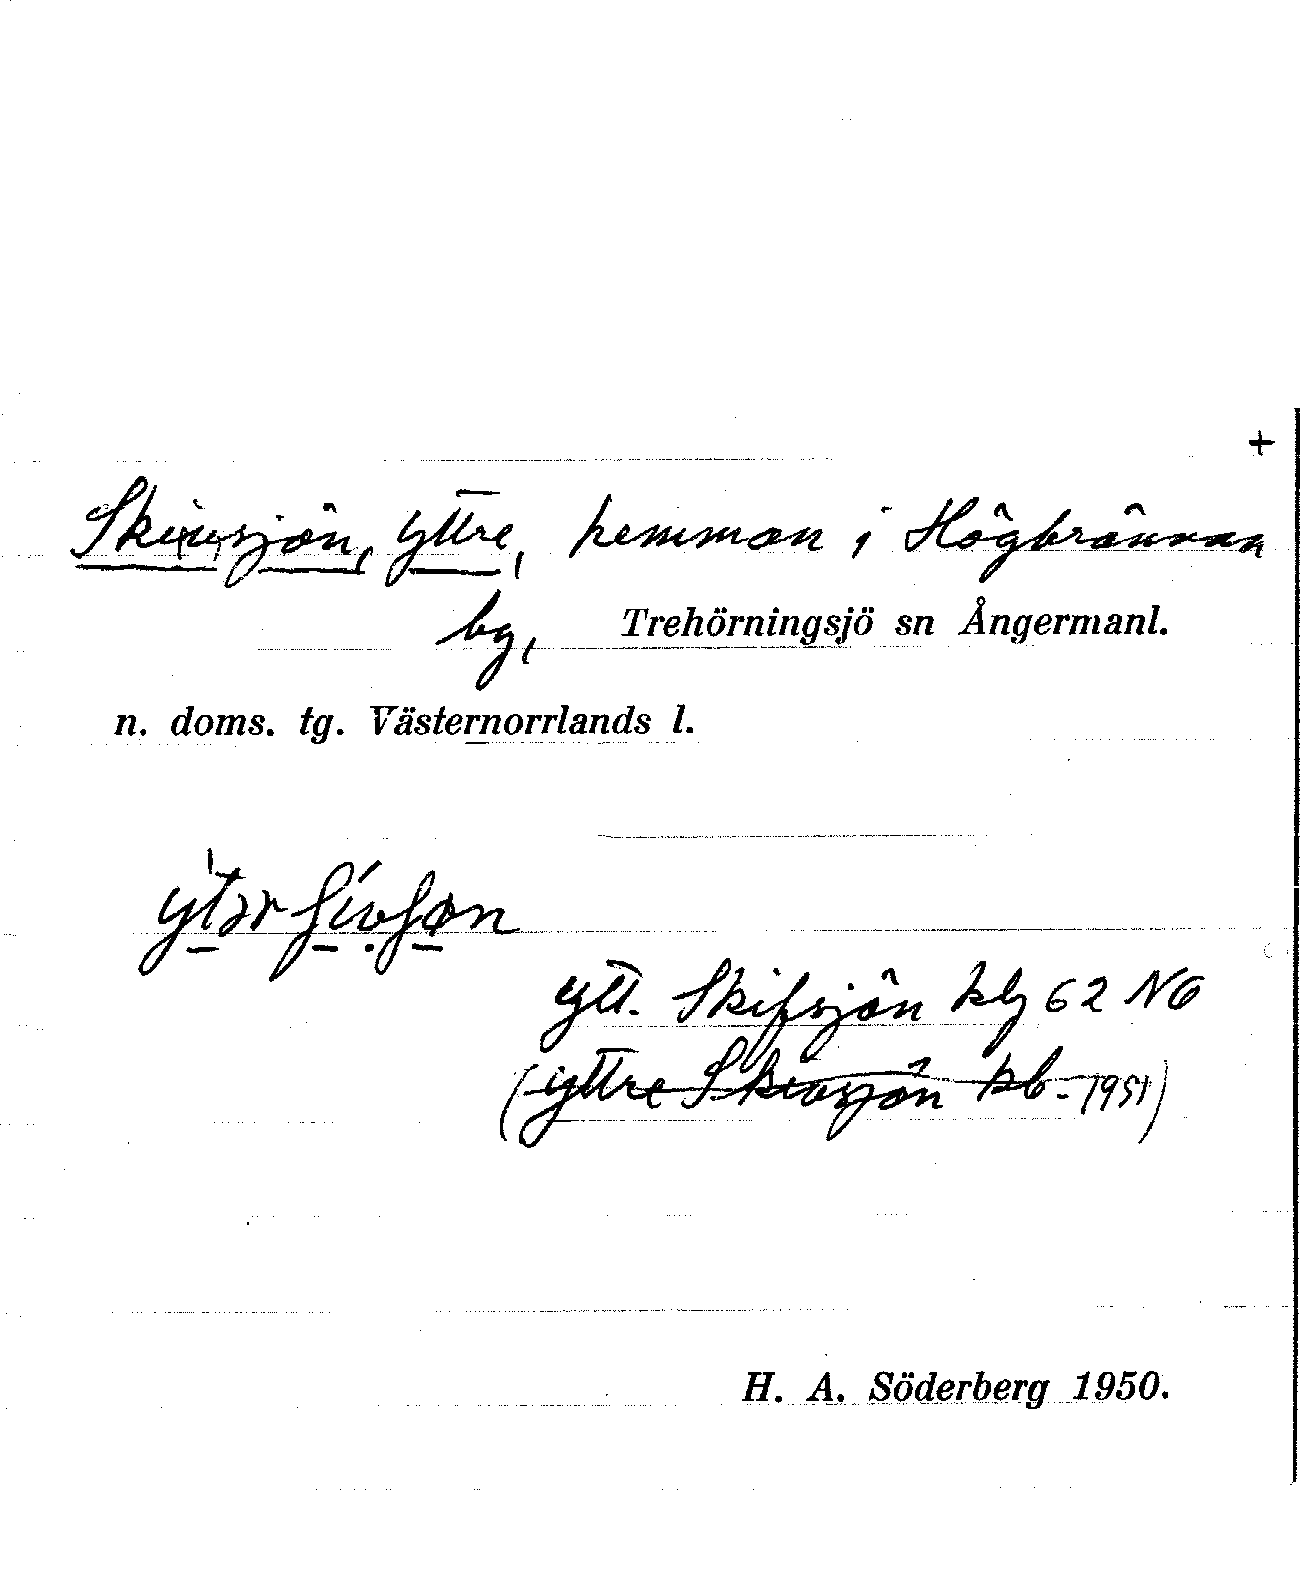 +
Ski(v)sjön, yttre, hemman i Högbrännan
bg, Trehörningsjö sn Ångermanl.
n. doms. tg. Västernorrlands l.
ytt. Skifsjön kbl 62 NO
(yttre Skivsjön kb. 1951)
H. A. Söderberg 1950.